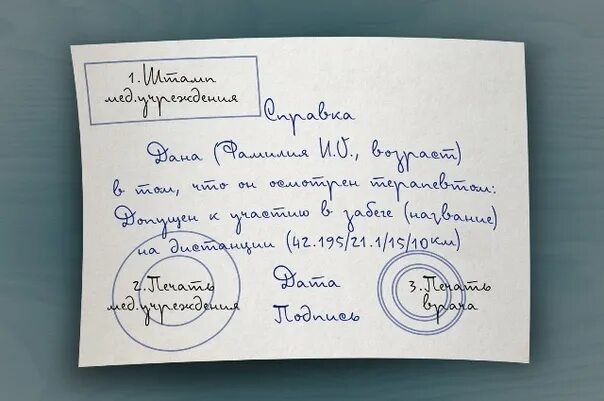 1. Штамп
мед.учреждения
Справка
Дана (Фамилия И.О., возраст)
в том, что он осмотрен терапевтом:
Допущен к участию в забеге (название)
на дистанции (42.195/21.1/15/10км)
2. Печать
мед.учреждения
Дата
Подпись
3. Печать
врача